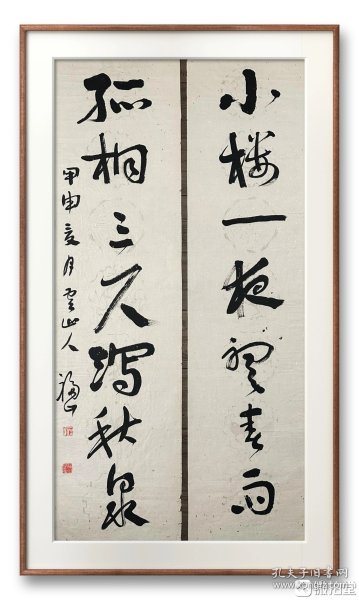 小楼一夜聽春雨
孤桐三尺瀉秋泉
甲申夏月山人
孔夫子旧书网
微拍堂